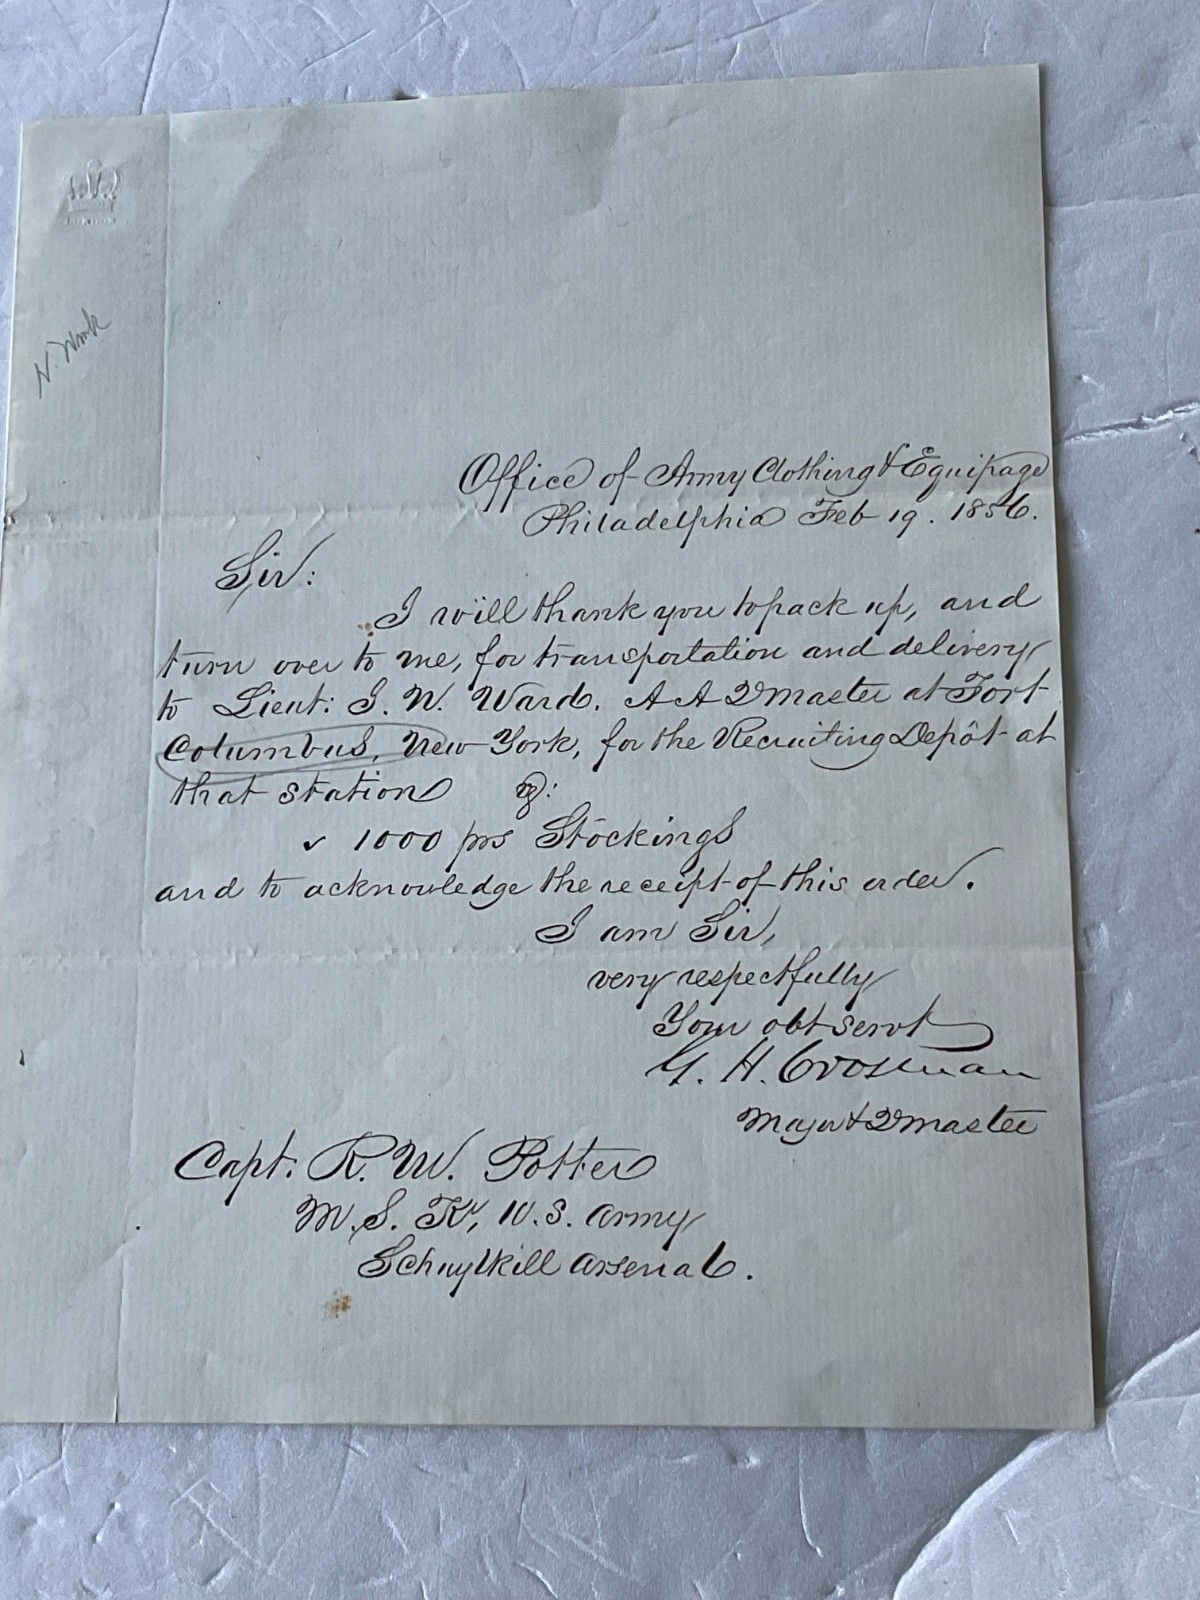 N. York
Office of Army Clothing & Equipage
Philadelphia Feb 19. 1856.
Sir:
I will thank you to pack up, and
turn over to me, for transportation and delivery
to Lieut: J. N. Ward. A A Qmaster at Fort
Columbus, New York, for the Recruiting Depôt at
that station viz:
✓ 1000 prs Stockings
and to acknowledge the receipt of this order.
I am Sir,
very respectfully
Your obt servt
G. H. Crosman
Major & Qmaster
Capt. R. M. Potter
M. S. Kr, U. S. Army
Schuylkill Arsenal.